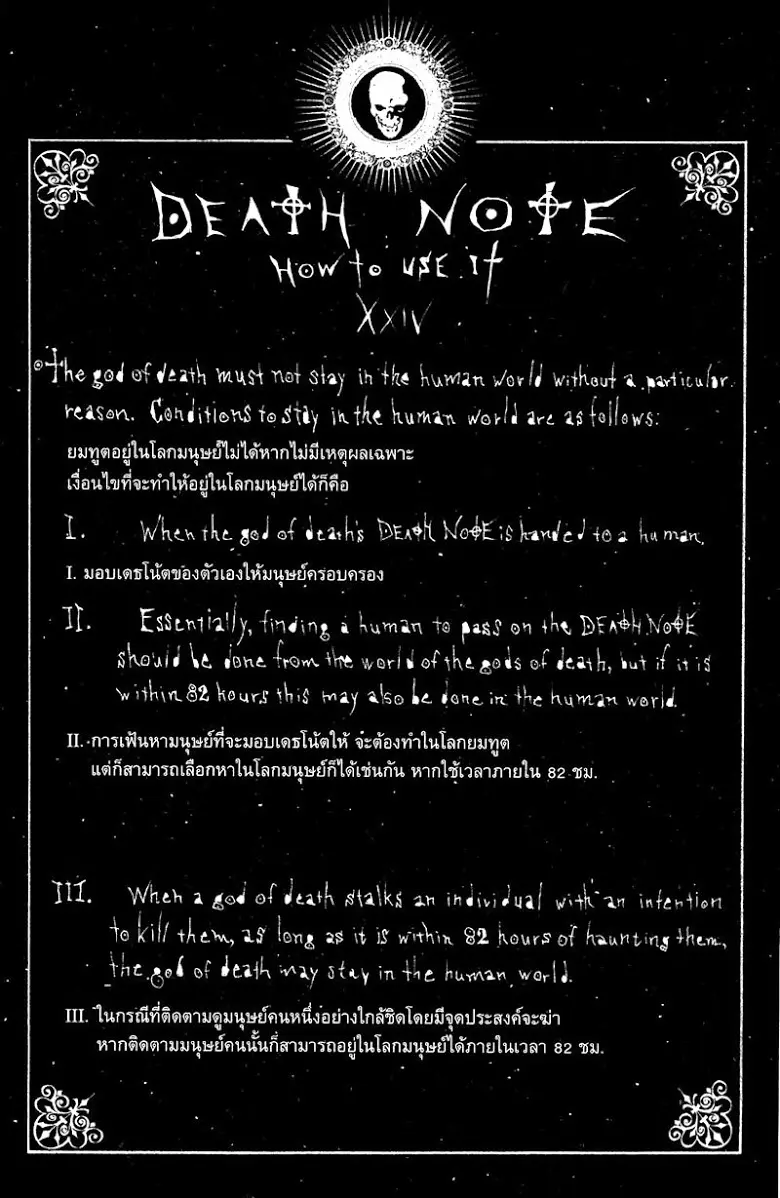 DEATH NOTE
HOW to USE it
XXIV
The god of death must not stay in the human world without a particular
reason. Conditions to stay in the human world are as follows:
ยมทูตอยู่ในโลกมนุษย์ไม่ได้หากไม่มีเหตุผลเฉพาะ
เงื่อนไขที่จะทำให้อยู่ในโลกมนุษย์ได้ก็คือ
I. When the god of death's DEATH NOTE is handed to a human.
I. มอบเดธโน้ตของตัวเองให้มนุษย์ครอบครอง
II. Essentially, finding a human to pass on the DEATH NOTE
should be done from the world of the gods of death, but if it is
within 82 hours this may also be done in the human world.
II. การเฟ้นหามนุษย์ที่จะมอบเดธโน้ตให้ จะต้องทำในโลกยมทูต
แต่ก็สามารถเลือกหาในโลกมนุษย์ก็ได้เช่นกัน หากใช้เวลาภายใน 82 ชม.
III. When a god of death stalks an individual with an intention
to kill them, as long as it is within 82 hours of haunting them,
the god of death may stay in the human world.
III. ในกรณีที่ติดตามดูมนุษย์คนหนึ่งอย่างใกล้ชิดโดยมีจุดประสงค์จะฆ่า
หากติดตามมนุษย์คนนั้นก็สามารถอยู่ในโลกมนุษย์ได้ภายในเวลา 82 ชม.